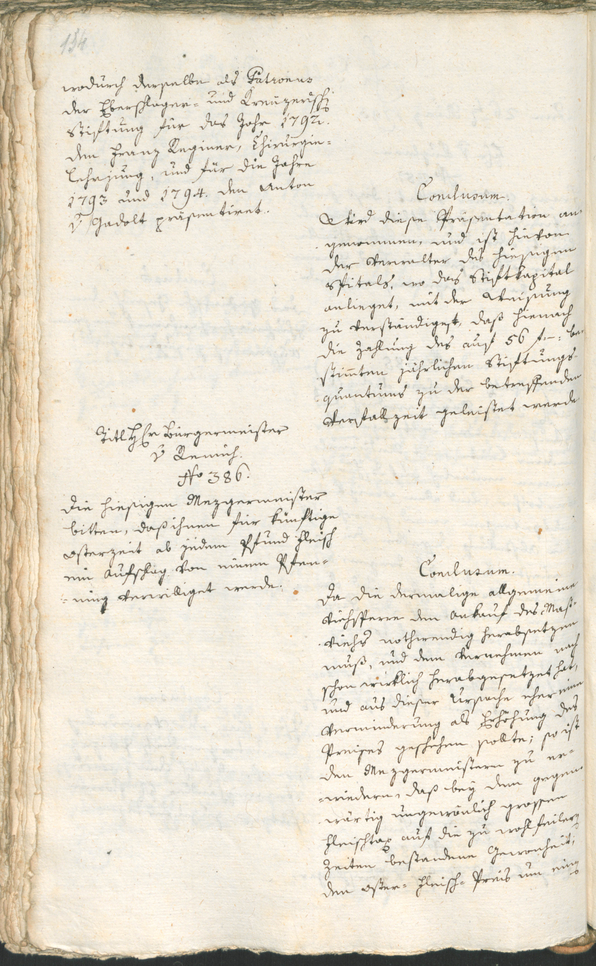 154
wodurch derselbe als Patronus
der Eberschlager- und Kreuzerisch:
Stiftung für das Jahr 1792.
den Franz Reginer, Chirurgie-
Lehrjung, und für die Jahre
1793 und 1794. den Anton
v Gadolt präsentiret.
Conclusum.
Wird diese Präsentation an-
genommen, und ist hievon
der Verwalter des hiesigen
Spitals, wo das Stiftkapital
anlieget, mit der Weisung
zu verständigen, daß hienach
die Zahlung des auf 56 f be-
stimten jährlichen Stiftungs-
quantums zu der betreffenden
Verfallzeit geleistet werde
Titl H Bürgermeister
v Remich.
No 386.
Die hiesigen Mezgermeister
bitten, daß ihnen für künftige
Osterzeit ab jedem Pfund Fleisch
ein Aufschlag von einem Pfen-
ning verwilliget werde.
Conclusum.
Da die dermalige allgemeine
Viehsperre den Ankauf des Mast-
Viehes nothwendig herabsetzen
muß, und dem Vernehmen nach
schon wirklich herabgesetzet hat,
und aus dieser Ursache eher eine
Verminderung als Erhöhung des
Preises geschehen sollte; so ist
den Mezgermeistern zu er-
wiedern, daß bey dem gegen-
wärtig ungewönlich grossen
Fleischtax auf die zu wohlfeilern
Zeiten bestandene Gewonheit,
den Oster-Fleisch-Preis um einen